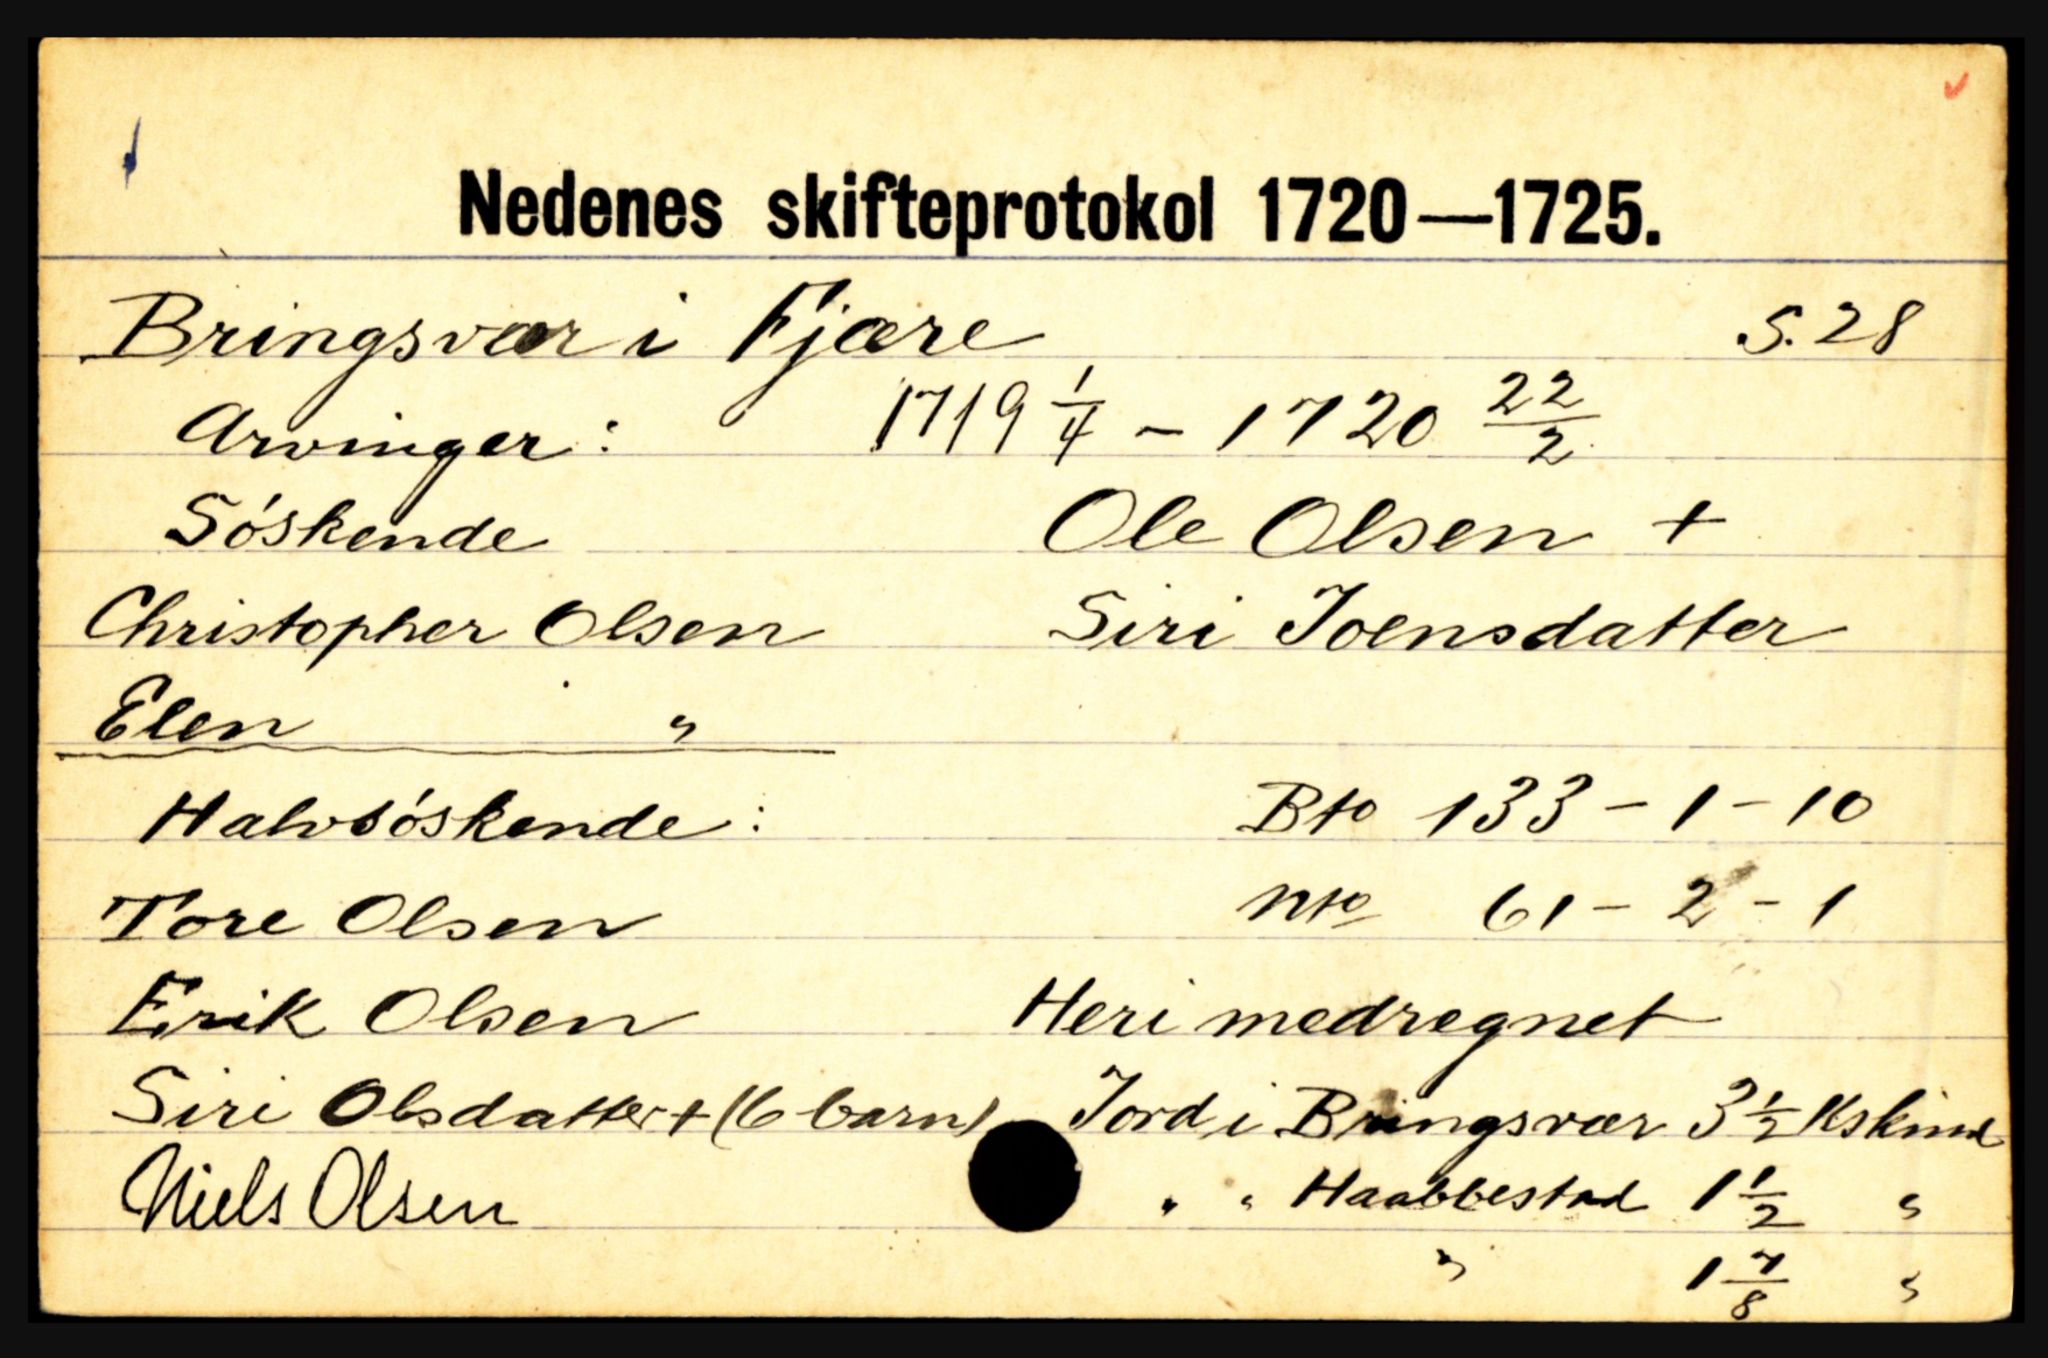 Nedenes skifteprotokol 1720—1725.
Bringsvær i Fjære S. 28
Arvinger: 1719 1/4 - 1720 22/2
Söskende Ole Olsen +
Christopher Olsen Siri Joensdatter
Elen "
Halvsöskende: Bto 133 - 1 - 10
Tore Olsen Nto 61 - 2 - 1
Erik Olsen Heri medregnet
Siri Olsdatter + (6 barn) Jord i Bringsvær 3 1/2 Kskind
Niels Olsen " " Haabbestad 1 1/2 "
" 1 7/8 "